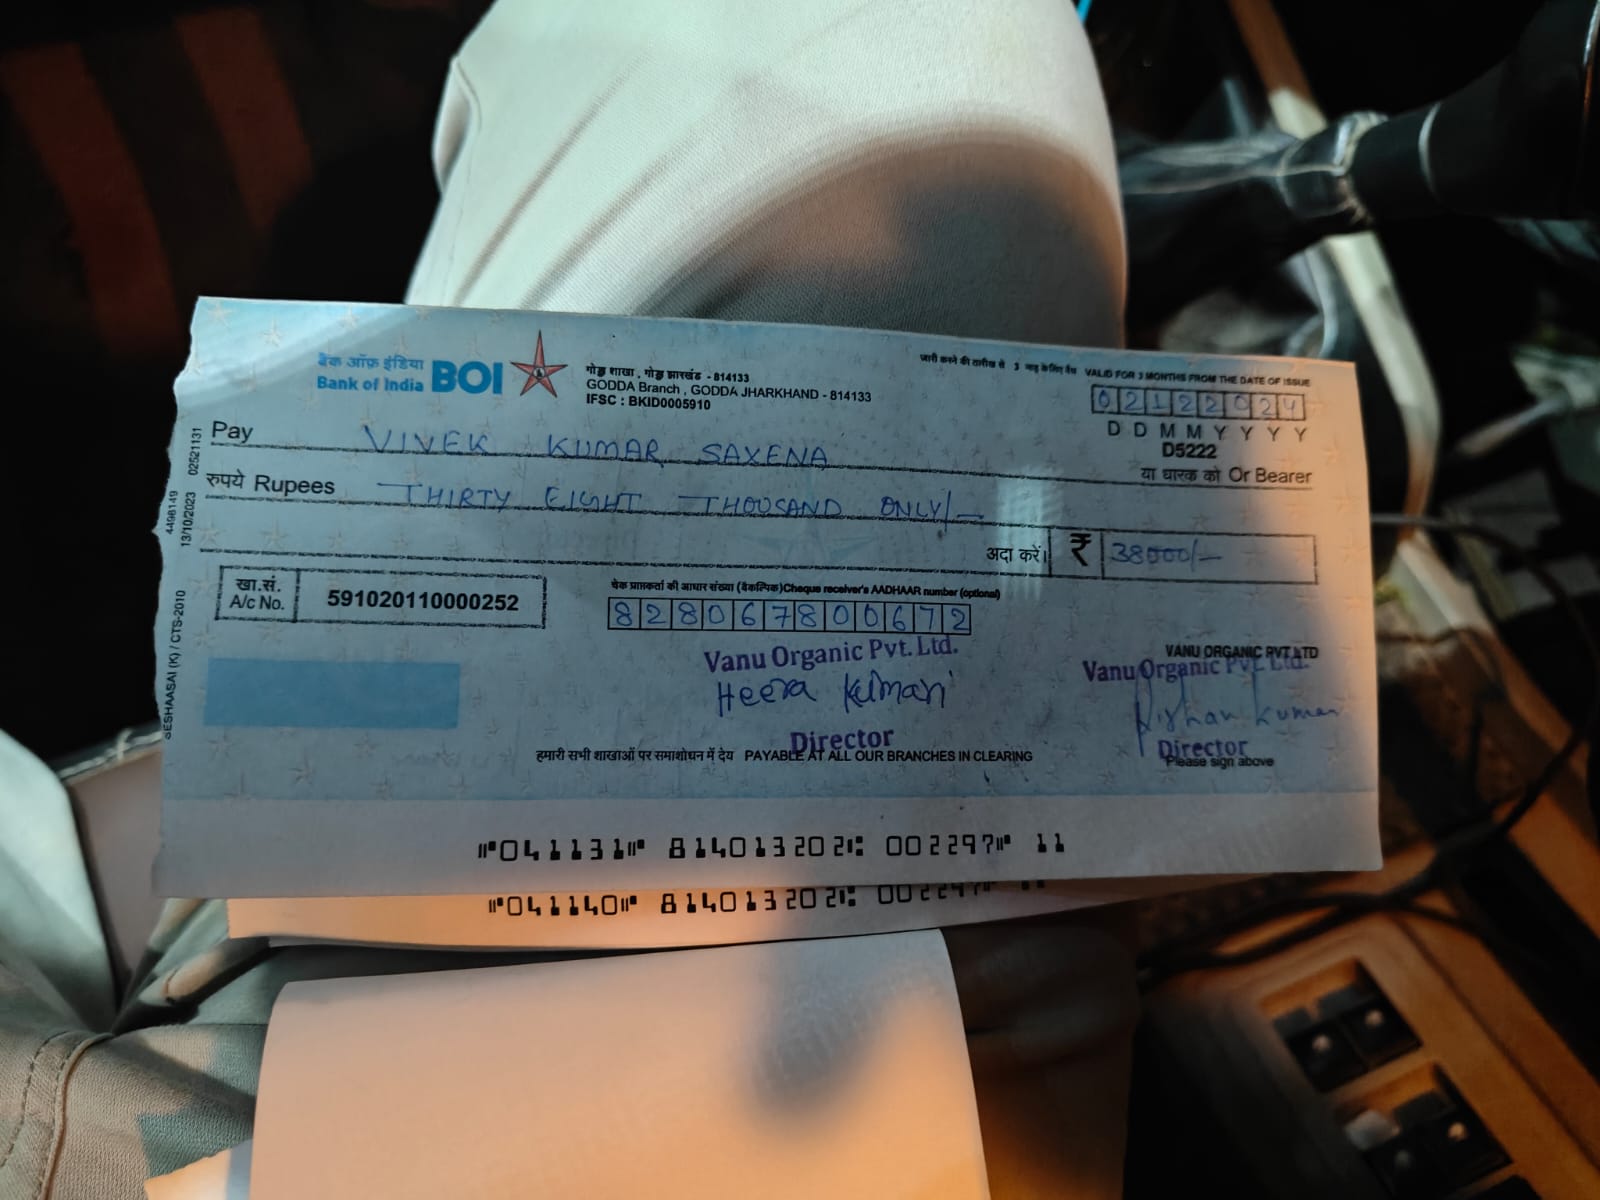 बैंक ऑफ़ इंडिया
Bank of India BOI
गोड्डा शाखा , गोड्डा झारखंड - 814133
GODDA Branch , GODDA JHARKHAND - 814133
IFSC : BKID0005910
जारी करने की तारीख से 3 माह के लिए वैध VALID FOR 3 MONTHS FROM THE DATE OF ISSUE
02122024
D D M M Y Y Y Y
D5222
Pay VIVEK KUMAR SAXENA
या धारक को Or Bearer
रुपये Rupees THIRTY EIGHT THOUSAND ONLY/-
अदा करें। ₹ 38000/-
खा.सं.
A/c No. 591020110000252
चेक प्राप्तकर्ता की आधार संख्या (वैकल्पिक)Cheque receiver's AADHAAR number (optional)
828067800672
Vanu Organic Pvt. Ltd.
Heera Kumari
Director
VANU ORGANIC PVT LTD
Vanu Organic Pvt. Ltd.
Kumar
Director
Please sign above
हमारी सभी शाखाओं पर समाशोधन में देय PAYABLE AT ALL OUR BRANCHES IN CLEARING
⑈041131⑈ 814013202⑆ 002297⑈ 11
⑈041140⑈ 814013202⑆ 002297⑈ 11
02521131
4498149
13/10/2023
SESHAASAI (K) / CTS-2010